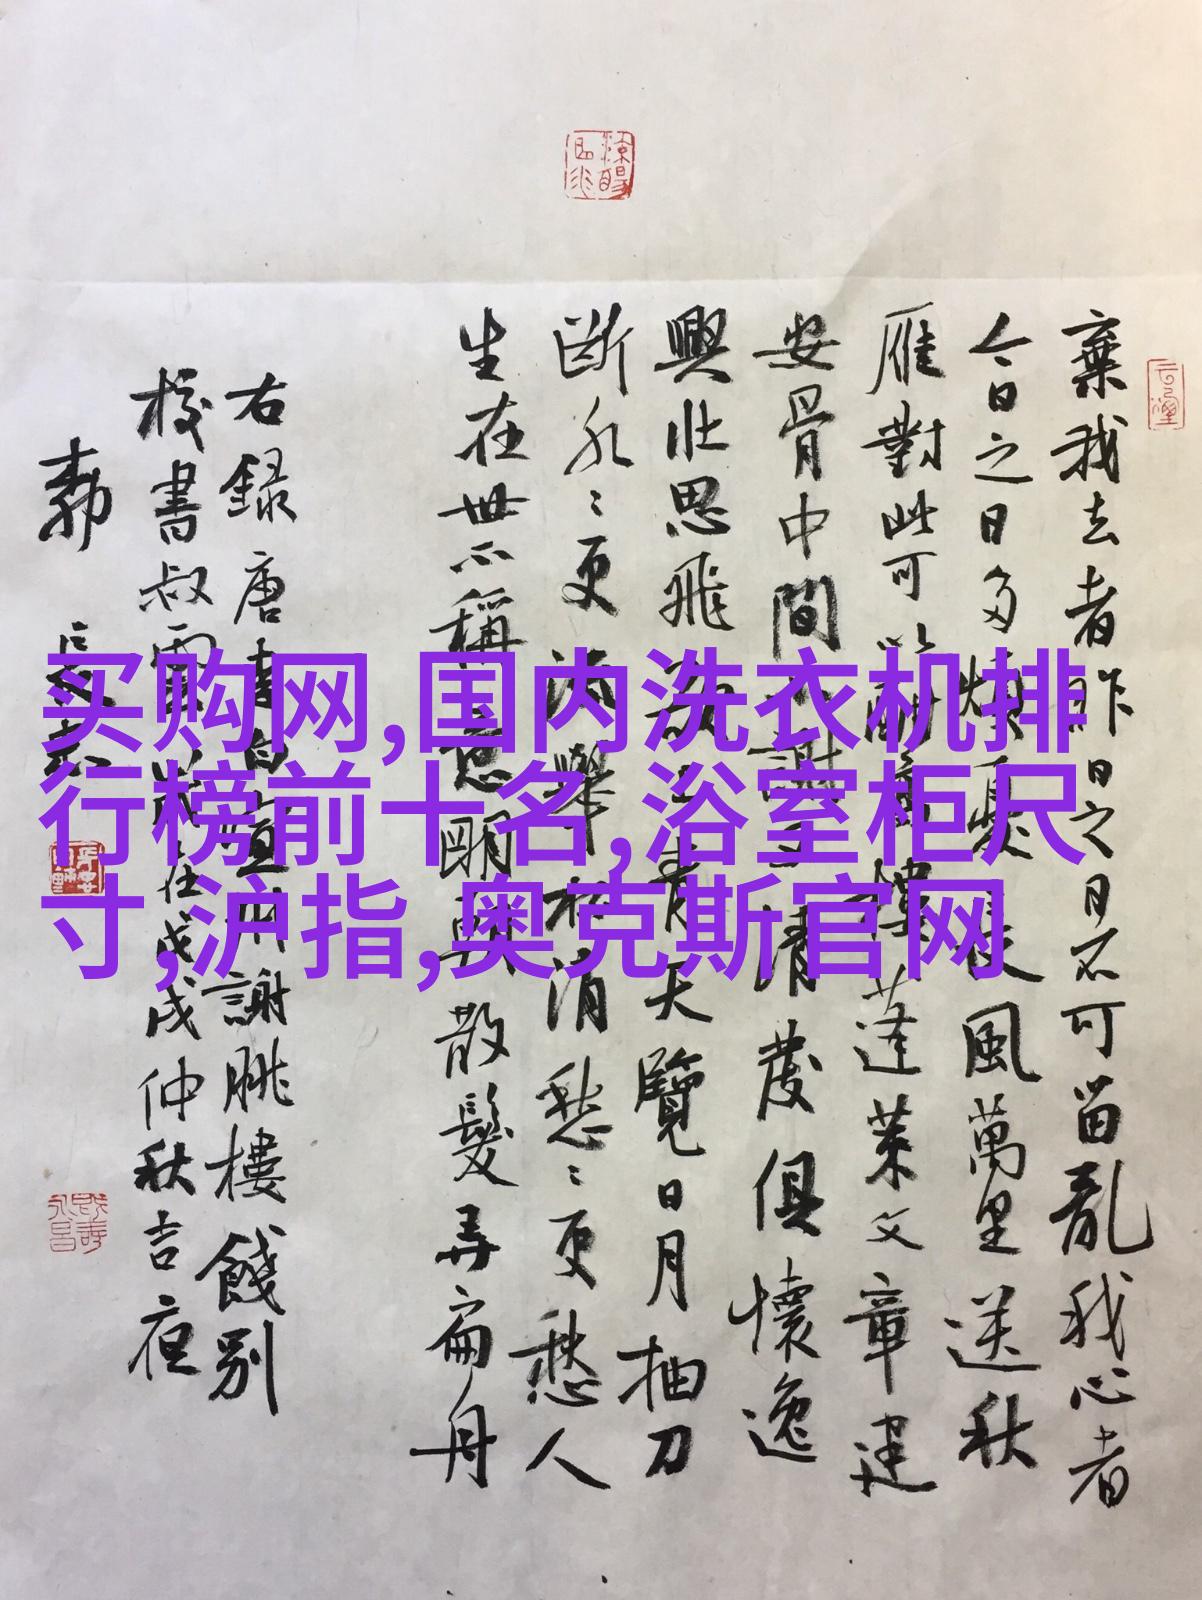 棄我去者昨日之日不可留亂我心者
今日之日多煩憂長風萬里送秋
雁對此可以酣高樓蓬萊文章建
安骨中間小謝又清發俱懷逸
興壯思飛欲上青天覽日月抽刀
斷水〻更流舉杯消愁〻更愁人
生在世不稱意明朝散髮弄扁舟
右録唐李白宣州謝朓樓餞別
校書叔雲 戊戌仲秋吉夜
买购网,国内洗衣机排
行榜前十名,浴室柜尺
寸,沪指,奥克斯官网